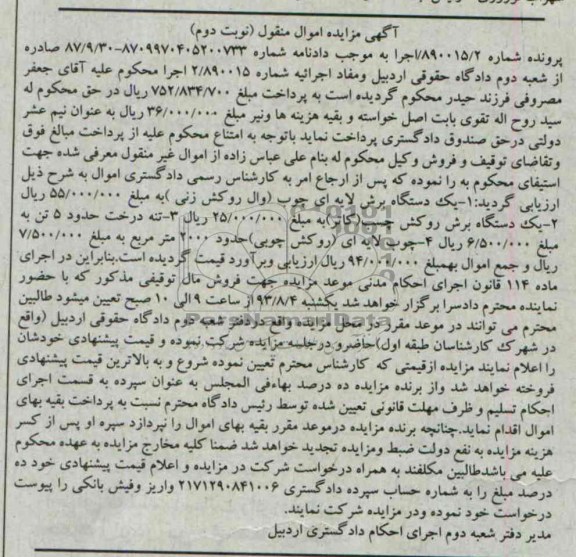 آگهی مزایده اموال منقول (نوبت دوم)
پرونده شماره ۸۹۰۰۱۵/۲/اجرا به موجب دادنامه شماره ۸۷۰۹۹۷۰۴۰۵۲۰۰۷۳۳-۸۷/۹/۳۰ صادره
از شعبه دوم دادگاه حقوقی اردبیل ومفاد اجرائیه شماره ۲/۸۹۰۰۱۵ اجرا محکوم علیه آقای جعفر
مصروفی فرزند حیدر محکوم گردیده است به پرداخت مبلغ ۷۵۲/۸۳۴/۷۰۰ ریال در حق محکوم له
سید روح اله تقوی بابت اصل خواسته و بقیه هزینه ها ونیر مبلغ ۳۶/۰۰۰/۰۰۰ ریال به عنوان نیم عشر
دولتی درحق صندوق دادگستری پرداخت نماید باتوجه به امتناع محکوم علیه از پرداخت مبالغ فوق
وتقاضای توقیف و فروش وکیل محکوم له بنام علی عباس زاده از اموال غیر منقول معرفی شده جهت
استیفای محکوم به را نموده که پس از ارجاع امر به کارشناس رسمی دادگستری اموال به شرح ذیل
ارزیابی گردید:۱-یک دستگاه برش لایه ای چوب (وال روکش زنی )به مبلغ ۵۵/۰۰۰/۰۰۰ ریال
۲-یک دستگاه برش روکش چوب(کاتر)به مبلغ ۲۵/۰۰۰/۰۰۰ ریال ۳-تنه درخت حدود ۵ تن به
مبلغ ۶/۵۰۰/۰۰۰ ریال ۴-چوب لایه ای (روکش چوبی)حدود ۲۰۰۰ متر مربع به مبلغ ۷/۵۰۰/۰۰۰
ریال و جمع اموال بهمبلغ ۹۴/۰۰۰/۰۰۰ ریال ارزیابی وبرآورد قیمت گردیده است.بنابراین در اجرای
ماده ۱۱۴ قانون اجرای احکام مدنی موعد مزایده جهت فروش مال توقیفی مذکور که با حضور
نماینده محترم دادسرا برگزار خواهد شد یکشنبه ۹۳/۸/۴ از ساعت ۹ الی ۱۰ صبح تعیین میشود طالبین
محترم می توانند در موعد مقرر در محل مزایده واقع در دفتر شعبه دوم دادگاه حقوقی اردبیل (واقع
در شهرک کارشناسان طبقه اول)حاضرو درجلسه مزایده شرکت نموده و قیمت پیشنهادی خودشان
را اعلام نمایند مزایده ازقیمتی که کارشناس محترم تعیین نموده شروع و به بالاترین قیمت پیشنهادی
فروخته خواهد شد واز برنده مزایده ده درصد بهاءفی المجلس به عنوان سپرده به قسمت اجرای
احکام تسلیم و ظرف مهلت قانونی تعیین شده توسط رئیس دادگاه محترم نسبت به پرداخت بقیه بهای
اموال اقدام نماید.چنانچه برنده مزایده درموعد مقرر بقیه بهای اموال را نپردازد سپره او پس از کسر
هزینه مزایده به نفع دولت ضبط ومزایده تجدید خواهد شد ضمنا کلیه مخارج مزایده به عهده محکوم
علیه می باشدطالبین مکلفند به همراه درخواست شرکت در مزایده و اعلام قیمت پیشنهادی خود ده
درصد مبلغ را به شماره حساب سپرده دادگستری ۲۱۷۱۲۹۰۸۴۱۰۰۶ واریز وفیش بانکی را پیوست
درخواست خود نموده ودر مزایده شرکت نمایند.
مدیر دفتر شعبه دوم اجرای احکام دادگستری اردبیل